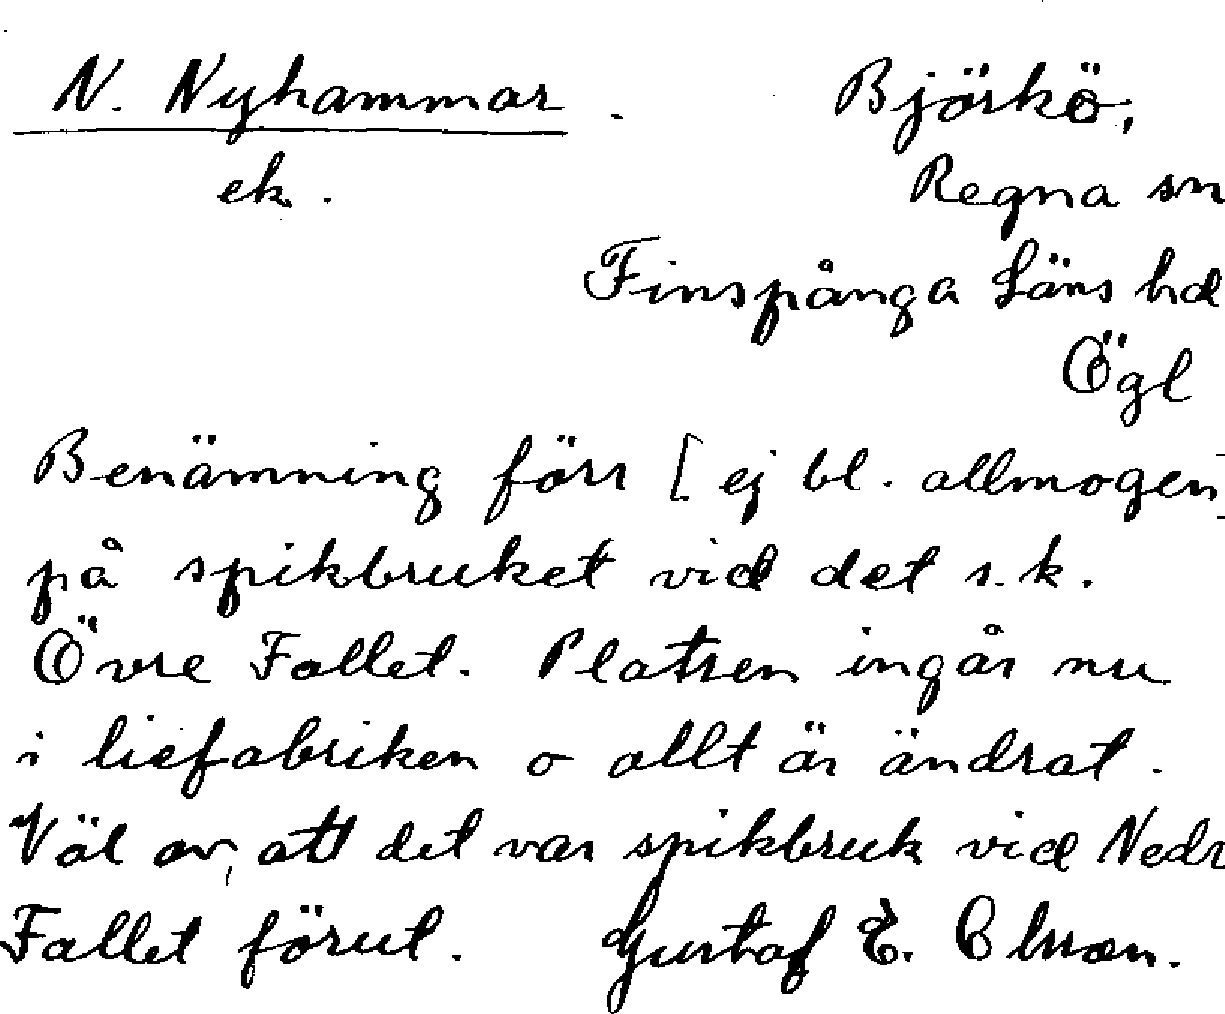 N. Nyhammar. Björkö,
ek. Regna sn
Finspånga Läns hd
Ögl
Benämning förr [ej bl. allmogen]
på spikbruket vid det s.k.
Övre Fallet. Platsen ingår nu
i liefabriken o allt är ändrat.
Väl av, att det var spikbruk vid Nedr
Fallet förut. Gustaf E.